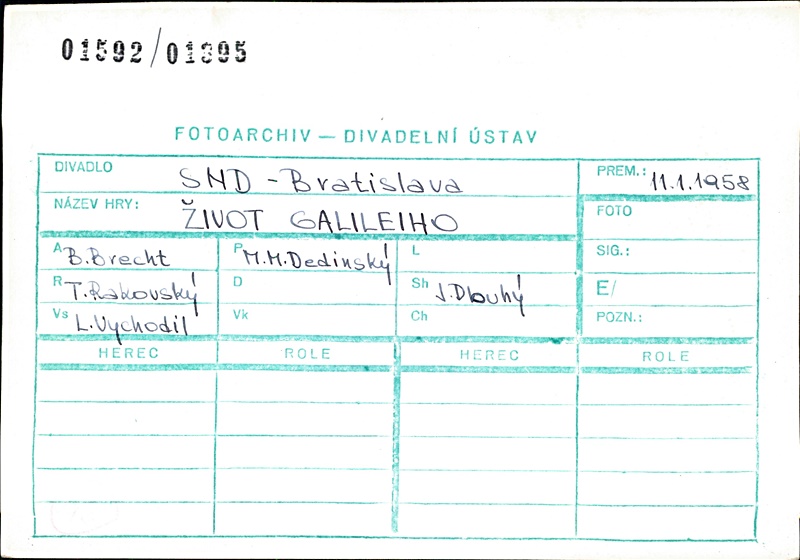 01592/01895
FOTOARCHIV — DIVADELNÍ ÚSTAV
DIVADLO SND - Bratislava PREM.: 11.1.1958
NÁZEV HRY: ŽIVOT GALILEIHO FOTO
A B.Brecht P M.M.Dedinský L SIG.:
R T.Rakovský D Sh J.Dlouhý E/
Vs L.Vychodil Vk Ch POZN.:
HEREC ROLE HEREC ROLE